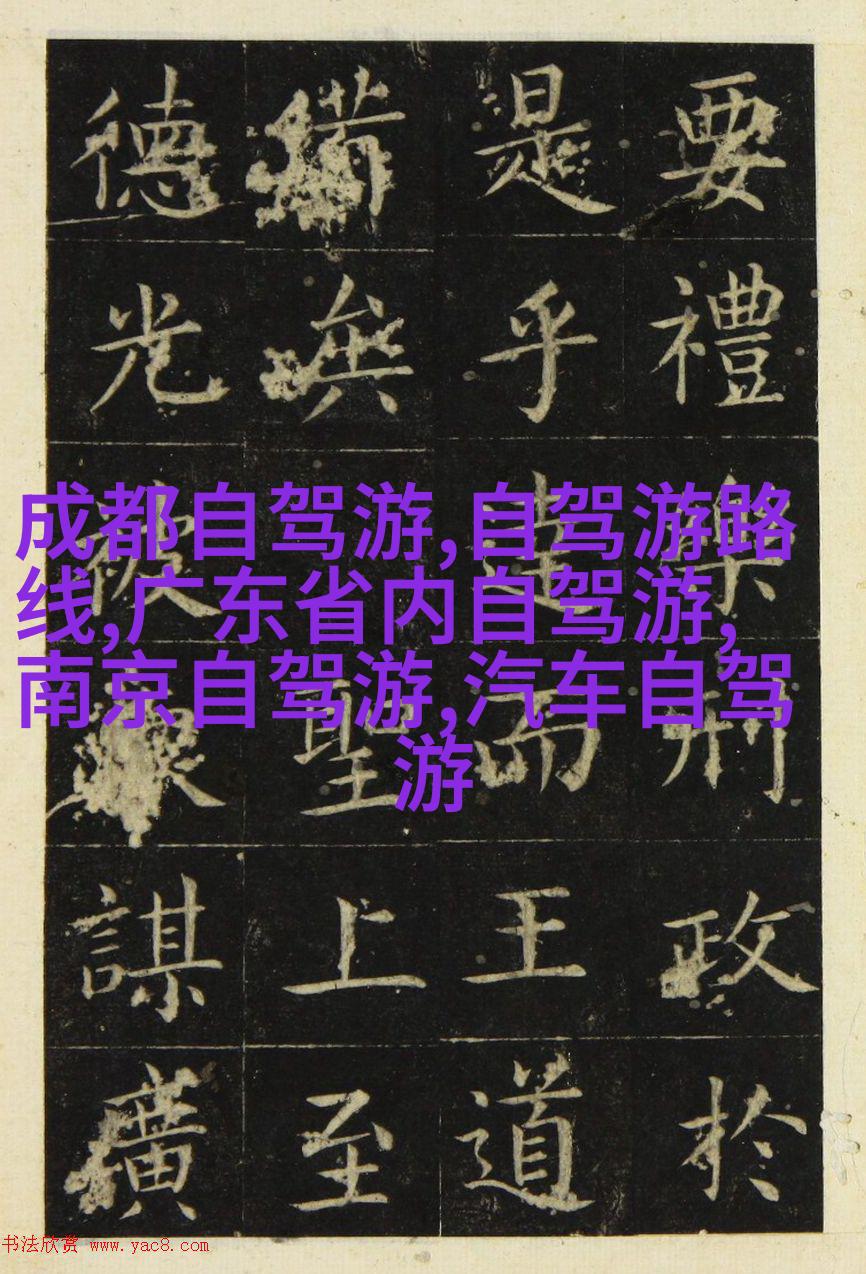 要禮樂刑政於
是乎達而王道
備無聖上至
德光被謀廣
成都自驾游,自驾游路
线,广东省内自驾游,
南京自驾游,汽车自驾
游
书法欣赏 www.yac8.com